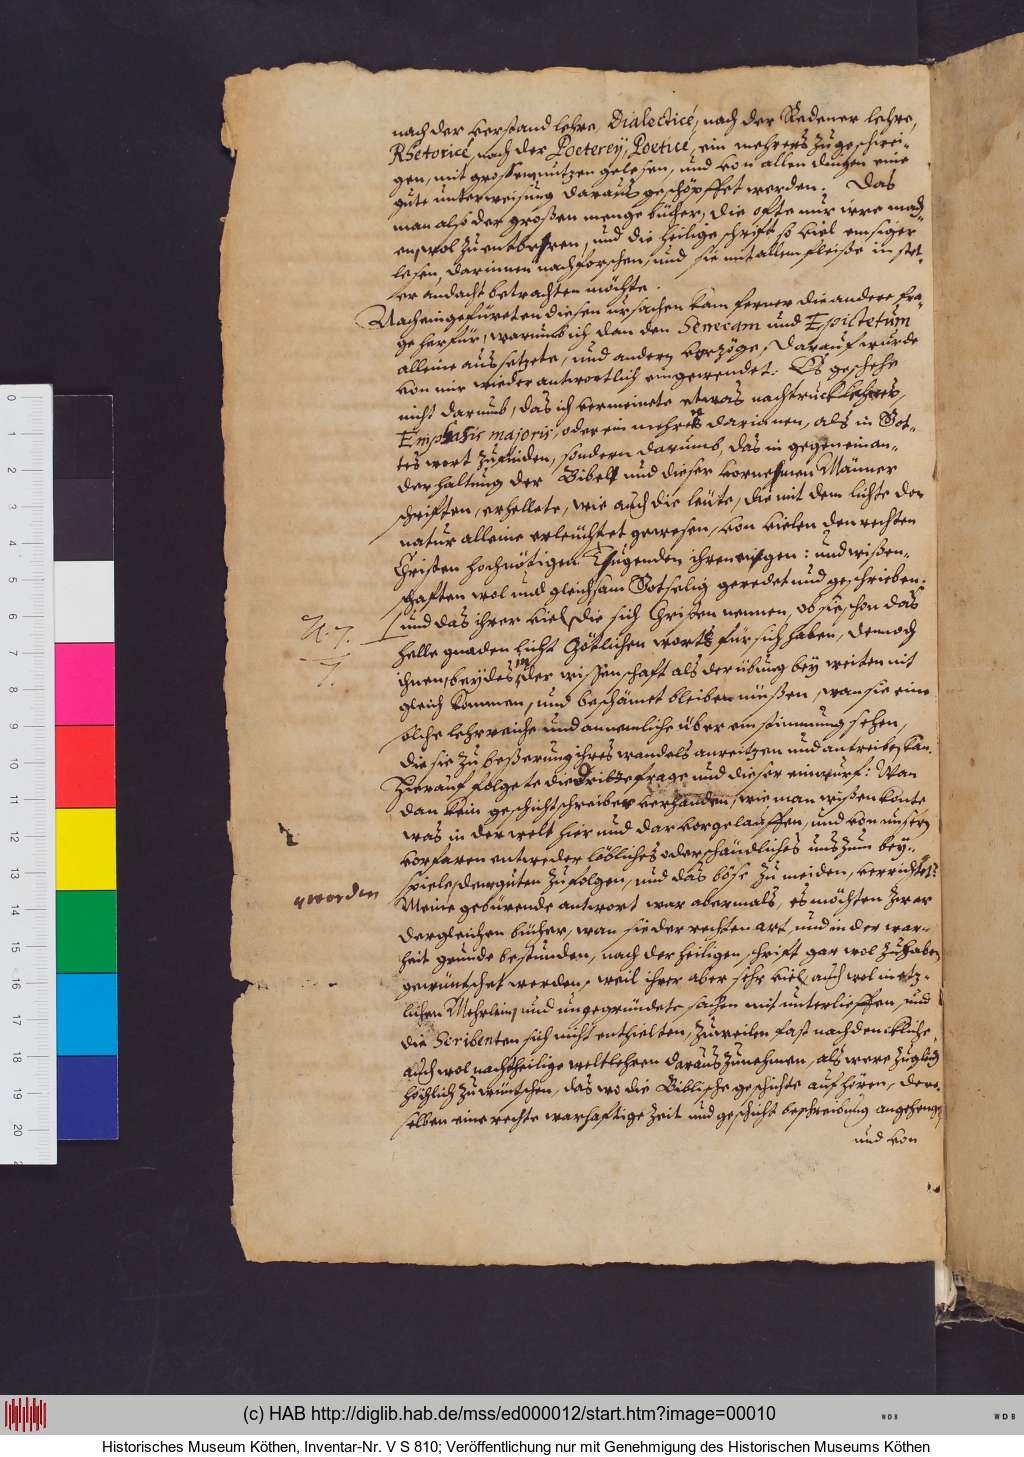 nach der verstand lehre, Dialecticé, nach der Redener lehre,
Rhetoricé, nach der Poeterey, Poeticé, ein mehrers zugeschwei-
gen, mit grossem nutzen gelesen, und von allen dingen eine
gute unterweisung daraus geschöpffet werden. Das
man also der großen menge bücher, die ofte nur irre mach-
en, wol zu entbehren, und die heilige schrift so viel emsiger
lesen, darinnen nachforschen, und sie mit allem fleiße in stet-
er andacht betrachten möchte.
Nach eingefüreten diesen ursachen kam ferner die andere fra-
ge herfür, warumb ich dan den Senecam und Epictetum
alleine aussetzete, und andern vorzöge, Darauf wurde
von mir wieder antwortlich eingewendet: Es geschehe
nicht darumb, das ich vermeinete etwas nachtrücklichers,
Emphasis majoris, oder ein mehrers darinnen, als in Got-
tes wort zufinden, sondern darumb, das in gegeneinan-
derhaltung der Bibell und dieser vornehmen Männer
schriften, erhellete, wie auch die leute, die mit dem lichte der
natur alleine erleuchtet gewesen, von vielen den rechten
Christen hochnötigen Tugenden ihren eigen: und wißen-
schaften wol und gleichsam Gotselig geredet und geschrieben:
N. 7.
und das ihrer viel, die sich Christen nennen, ob sie schon das
helle gnaden licht Götlichen worts für sich haben, dennoch
ihnen, beydes in der wissenschaft als der übung bey weiten nit
gleich kommen, und beschämet bleiben müßen, wan sie eine
solche lehrreiche und annemliche über ein stimmung sehen,
die sie zu beßerung ihres wandels anreitzen und antreiben kan.
Hierauf folgete die dritte frage und dieser einwurf: Wan
dan kein geschichtschreiber verhanden, wie man wißen konte
was in der welt hier und dar vorgelauffen, und von unsern
vorfaren entweder löbliches oder schändliches uns zum bey-
spiele, dem guten zufolgen, und das böse zu meiden, verrichtet
worden
Meine gebürende antwort war abermals, es möchten zwar
dergleichen bücher, wan sie der rechten art, und in der war-
heit grunde bestunden, nach der heiligen schrift gar wol zuhaben
gewüntschet werden, weil ihrer aber sehr viel, auch wol in etz-
lichen Mehrlein, und ungegründete sachen mit unterlieffen, und
die Scribenten sich nicht enthielten, zuweilen fast nachdenckliche,
auch wol nachtheilige weltlehren daraus zunehmen, als were zugleich
höchlich zu wüntschen, das wo die Biblische geschichte aufhören, dero-
selben eine rechte warhaftige zeit und geschicht beschreibung angehenget,
und von
(c) HAB http://diglib.hab.de/mss/ed000012/start.htm?image=00010
Historisches Museum Köthen, Inventar-Nr. V S 810; Veröffentlichung nur mit Genehmigung des Historischen Museums Köthen